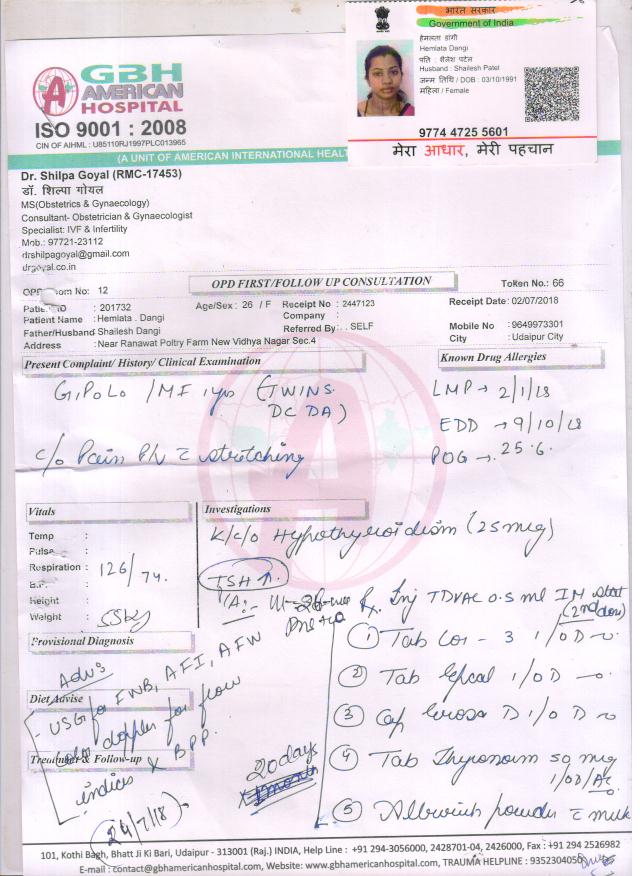 भारत सरकार
Government of India
हेमलता डांगी
Hemlata Dangi
पति : शैलेश पटेल
Husband : Shailesh Patel
जन्म तिथि / DOB : 03/10/1991
महिला / Female
9774 4725 5601
मेरा आधार, मेरी पहचान
GBH
AMERICAN
HOSPITAL
ISO 9001 : 2008
CIN OF AIHML : U85110RJ1997PLC013965
(A UNIT OF AMERICAN INTERNATIONAL HEALT
Dr. Shilpa Goyal (RMC-17453)
डॉ. शिल्पा गोयल
MS(Obstetrics & Gynaecology)
Consultant- Obstetrician & Gynaecologist
Specialist: IVF & Infertility
Mob.: 97721-23112
drshilpagoyal@gmail.com
drgoyal.co.in
OPD FIRST/FOLLOW UP CONSULTATION
ToKen No.: 66
OPD Room No: 12
Patient ID : 201732
Age/Sex : 26 / F
Receipt No : 2447123
Receipt Date: 02/07/2018
Patient Name : Hemlata . Dangi
Company :
Father/Husband Shailesh Dangi
Referred By: . . SELF
Mobile No : 9649973301
Address : Near Ranawat Poltry Farm New Vidhya Nagar Sec.4
City : Udaipur City
Present Complaint/ History/ Clinical Examination
Known Drug Allergies
G1P0L0 / MF 1yr (TWINS
DC DA)
LMP → 2/1/18
EDD → 9/10/18
POG → 25.6.
c/o Pain P/V c stretching
Vitals
Investigations
Temp :
Pulse :
Respiration :
B.P. : 126/74.
Height :
Weight : 55kg
K/C/O Hypothyroidism (25mcg)
TSH ↑.
P/A:-
Rx. Inj TDVAC 0.5 ml IM stat
(2nd dose)
1 Tab Cor - 3 1/OD
2 Tab Gepcal 1/OD
3 Cap D 1/OD
4 Tab Thyronorm 50 mcg
1/OD/AC
5 powder c milk
Provisional Diagnosis
Diet Advise
Treatment & Follow-up
Adv:
- USG for FWB, AFI, AFW
color doppler for flow
indices & BPP.
20 days
24/7/18
101, Kothi Bagh, Bhatt Ji Ki Bari, Udaipur - 313001 (Raj.) INDIA, Help Line : +91 294-3056000, 2428701-04, 2426000, Fax : +91 294 2526982
E-mail : contact@gbhamericanhospital.com, Website: www.gbhamericanhospital.com, TRAUMA HELPLINE : 9352304050